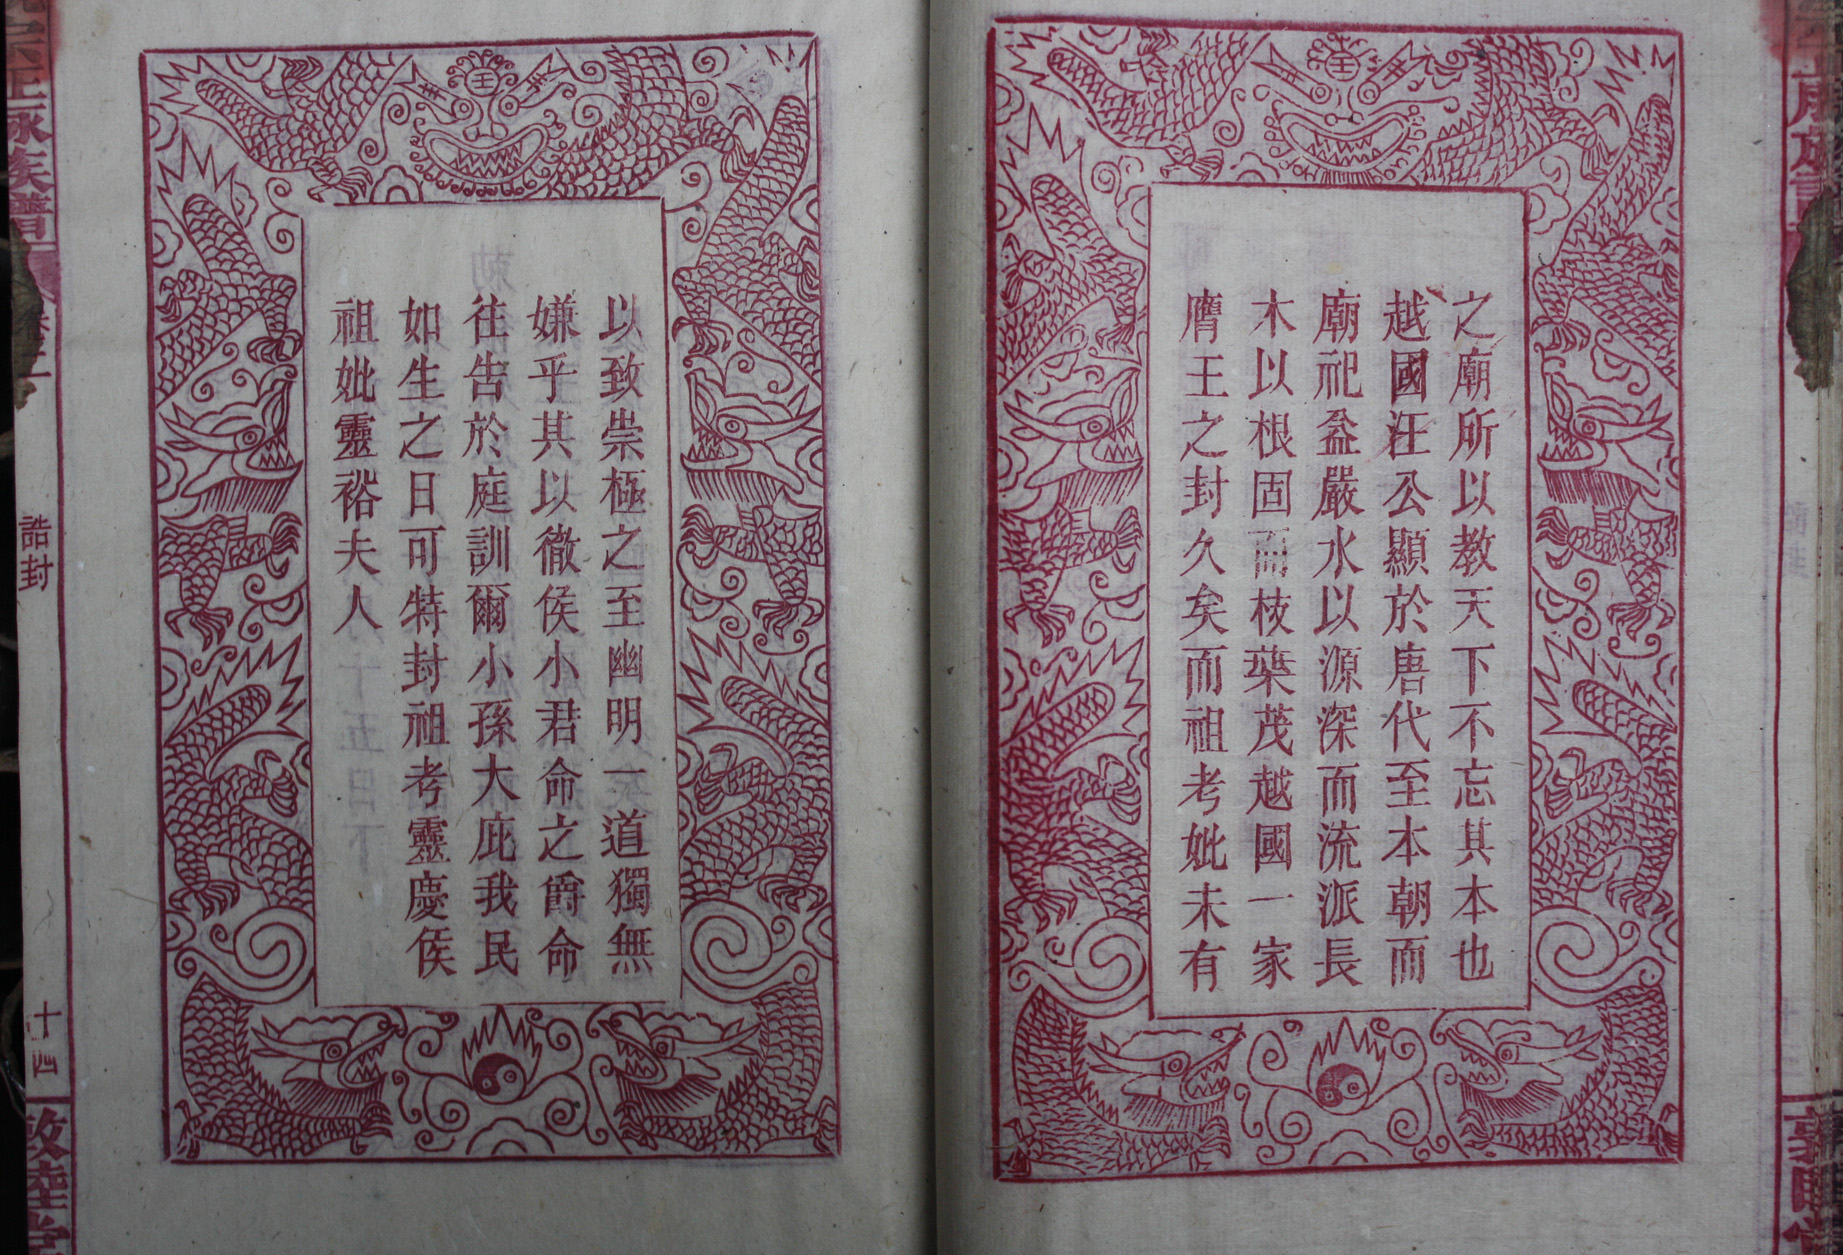 之廟所以教天下不忘其本也
越國汪公顯於唐代至本朝而
廟祀益嚴水以源深而流派長
木以根固而枝葉茂越國一家
膺王之封久矣而祖考妣未有
以致崇極之至幽明一道獨無
嫌乎其以徹侯小君命之爵命
往告於庭訓爾小孫大庇我民
如生之日可特封祖考靈慶侯
祖妣靈裕夫人
誥封
十四